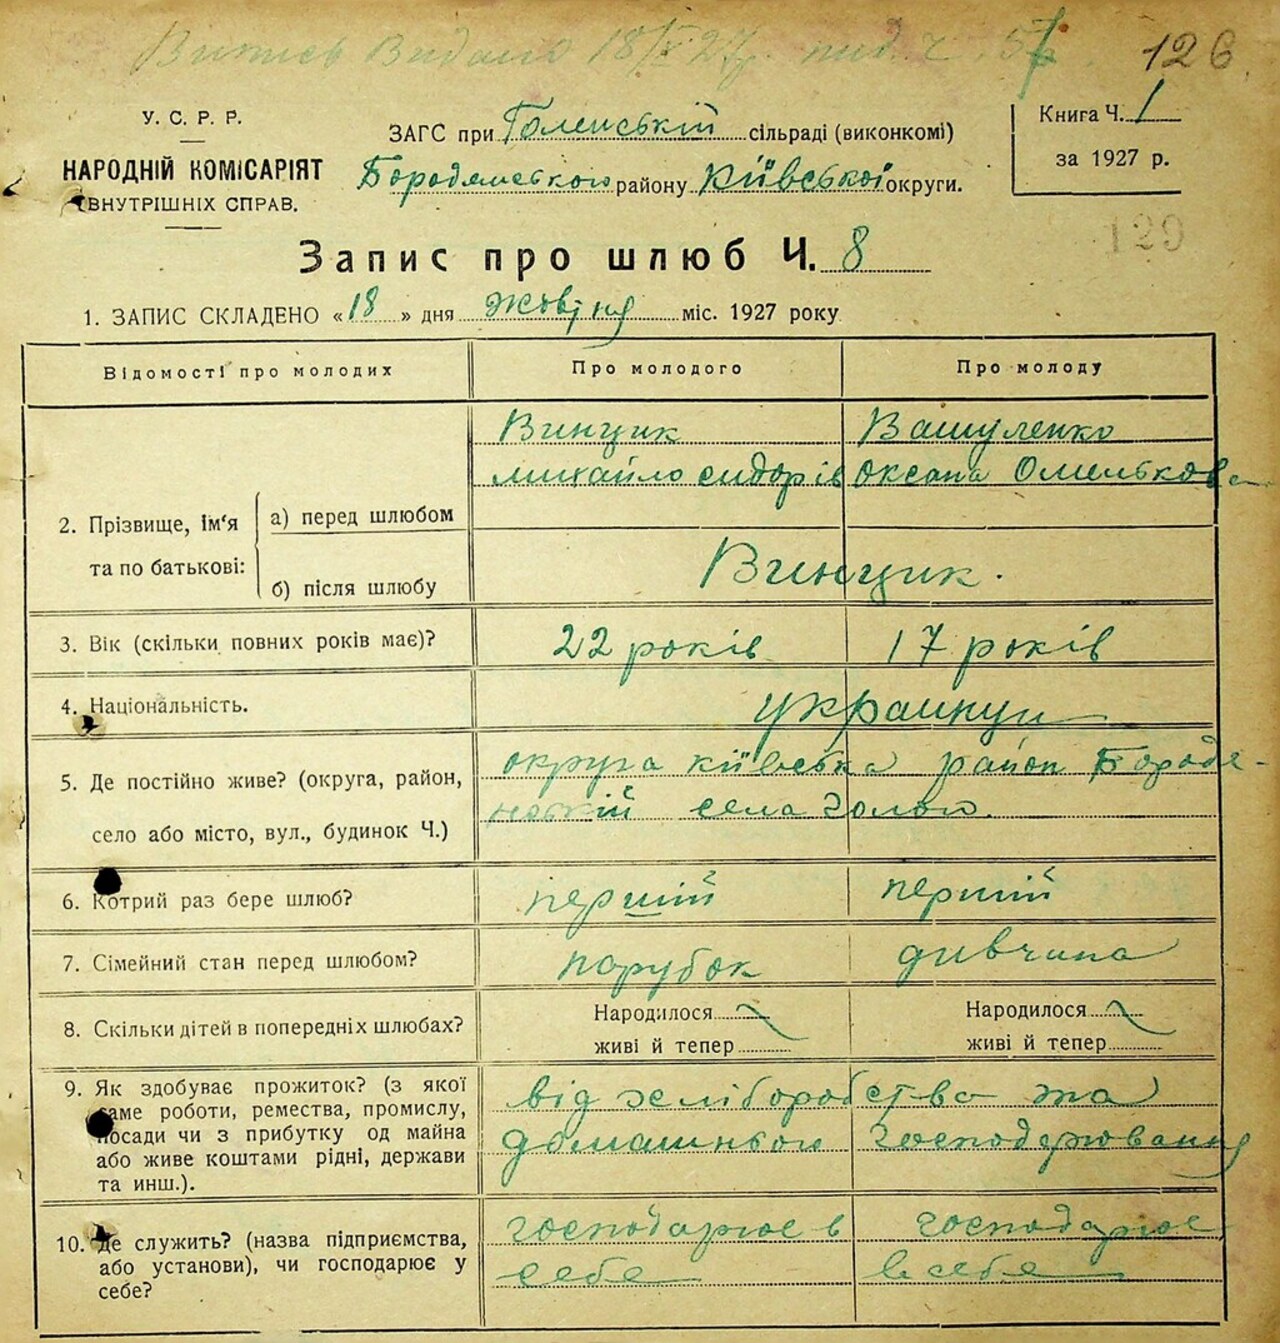 Витяг Видано 18/X 27р. під ч. 57
126
У. С. Р. Р.
НАРОДНІЙ КОМІСАРІЯТ
ВНУТРІШНІХ СПРАВ.
ЗАГС при Голенській сільраді (виконкомі)
Бородянського району Київської округи.
Книга Ч. 1
за 1927 р.
129
Запис про шлюб Ч. 8
1. ЗАПИС СКЛАДЕНО «18» дня жовтня міс. 1927 року
Відомості про молодих
Про молодого
Про молоду
2. Прізвище, ім'я
та по батькові:
а) перед шлюбом
б) після шлюбу
Винцик
михайло сидорів
Вашуленко
оксана Омелькова
Винцик.
3. Вік (скільки повних років має)?
22 років
17 років
4. Національність.
5. Де постійно живе? (округа, район,
село або місто, вул., будинок Ч.)
округа київська район Бородя-
нський села
6. Котрий раз бере шлюб?
перший
перший
7. Сімейний стан перед шлюбом?
парубок
дивчина
8. Скільки дітей в попередніх шлюбах?
Народилося
живі й тепер
Народилося
живі й тепер
9. Як здобуває прожиток? (з якої
саме роботи, ремества, промислу,
посади чи з прибутку од майна
або живе коштами рідні, держави
та инш.).
від хліборобства та
домашнього господарювання
10. Де служить? (назва підприємства,
або установи), чи господарює у
себе?
господарює в
себе
господарює
в себе